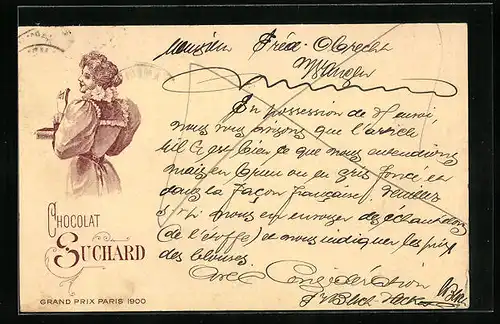 Monsieur Fréd. Obrecht
Wangen
En possession de
nous vous prions que l'article
est bien ce que nous entendions
mais en brun ou en gris foncé et
dans la façon française. Veuillez
s.v.pl. nous en envoyer des échantillons
(de l'étoffe) et nous indiquer les prix
des blouses.
Avec Considération
CHOCOLAT
SUCHARD
GRAND PRIX PARIS 1900